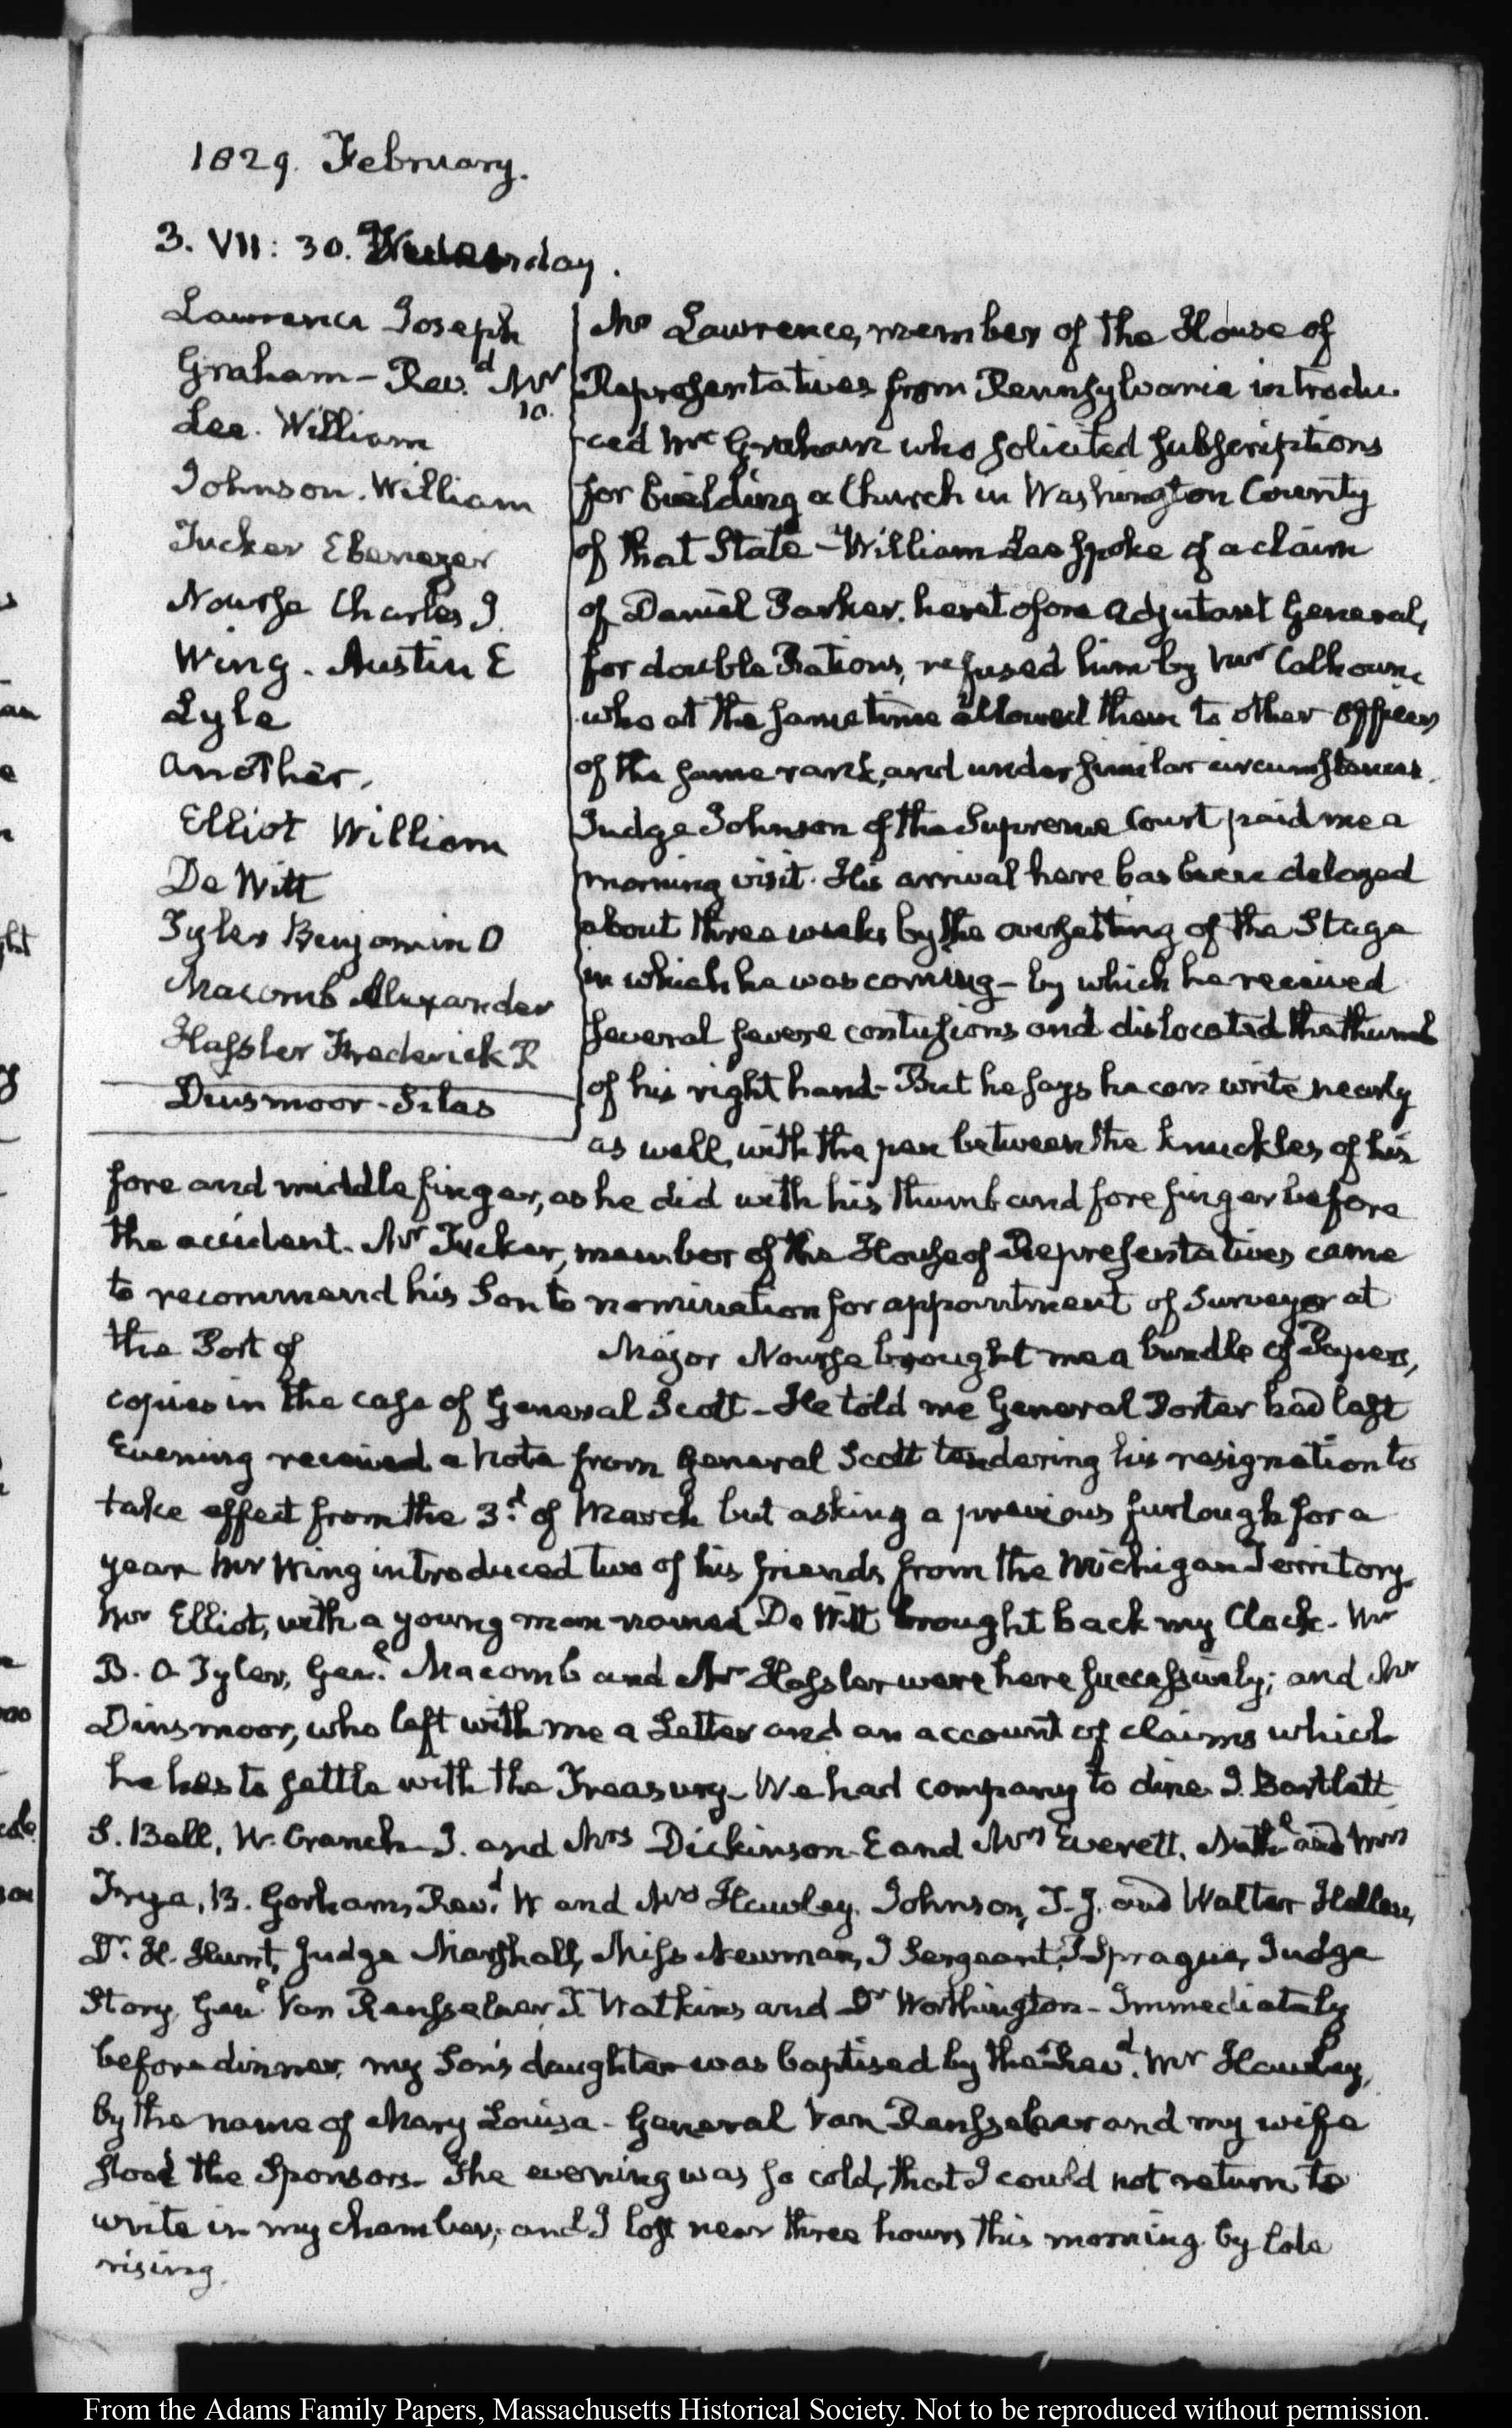 1829. February.
3. VII: 30. day.
Lawrence Joseph
Graham - Rev.d Mr
10.
Lee. William
Johnson. William
Tucker Ebenezer
Nourse Charles J.
Wing. Austin E
Lyle
another.
Elliot William
De Witt
Tyler Benjamin O
Macomb Alexander
Hassler Frederick R
Dinsmoor - Silas
Mr Lawrence, member of the House of
Representatives from Pennsylvania introdu-
ced Mr Graham who solicited subscriptions
for building a Church in Washington County
of that State - William Lee spoke of a claim
of Daniel Parker, heretofore Adjutant General,
for double Rations, refused him by Mr Calhoun,
who at the same time allowed them to other Officers
of the same rank, and under similar circumstances.
Judge Johnson of the Supreme Court paid me a
morning visit. His arrival here has been delayed
about three weeks by the oversetting of the Stage
in which he was coming - by which he received
several severe contusions and dislocated the thumb
of his right hand - But he says he can write nearly
as well, with the pen between the knuckles of his
fore and middle finger, as he did with his thumb and fore finger before
the accident. Mr Tucker, member of the House of Representatives came
to recommend his Son to nomination for appointment of Surveyor at
the Port of Major Nourse brought me a bundle of Papers,
copies in the case of General Scott - He told me General Porter had last
Evening received a Note from General Scott tendering his resignation to
take effect from the 3.d of March but asking a previous furlough for a
year Mr Wing introduced two of his friends from the Michigan Territory.
Mr Elliot, with a young man named De Witt brought back my Clock. Mr
B. O Tyler, Gen.l Macomb and Mr Hassler were here successively; and Mr
Dinsmoor, who left with me a Letter and an account of claims which
he has to settle with the Treasury - We had company to dine. I. Bartlett
S. Bell, W. Cranch J. and Mrs Dickinson - E and Mrs Everett. Nathl and Mrs
Frye, B. Gorham, Rev.d W and Mrs Hawley, Johnson, T. J. and Walter Hellen,
Dr. H. Hunt, Judge Marshall, Miss Newman, J Sergeant, P Sprague, Judge
Story, Genl Van Rensselaer, T Watkins and Dr Worthington - Immediately
before dinner, my Son's daughter was baptised by the Rev.d Mr Hawley,
by the name of Mary Louisa - General Van Rensselaer and my wife
stood the Sponsors - The evening was so cold, that I could not return to
write in my chamber; and I lost near three hours this morning by late
rising.
From the Adams Family Papers, Massachusetts Historical Society. Not to be reproduced without permission.